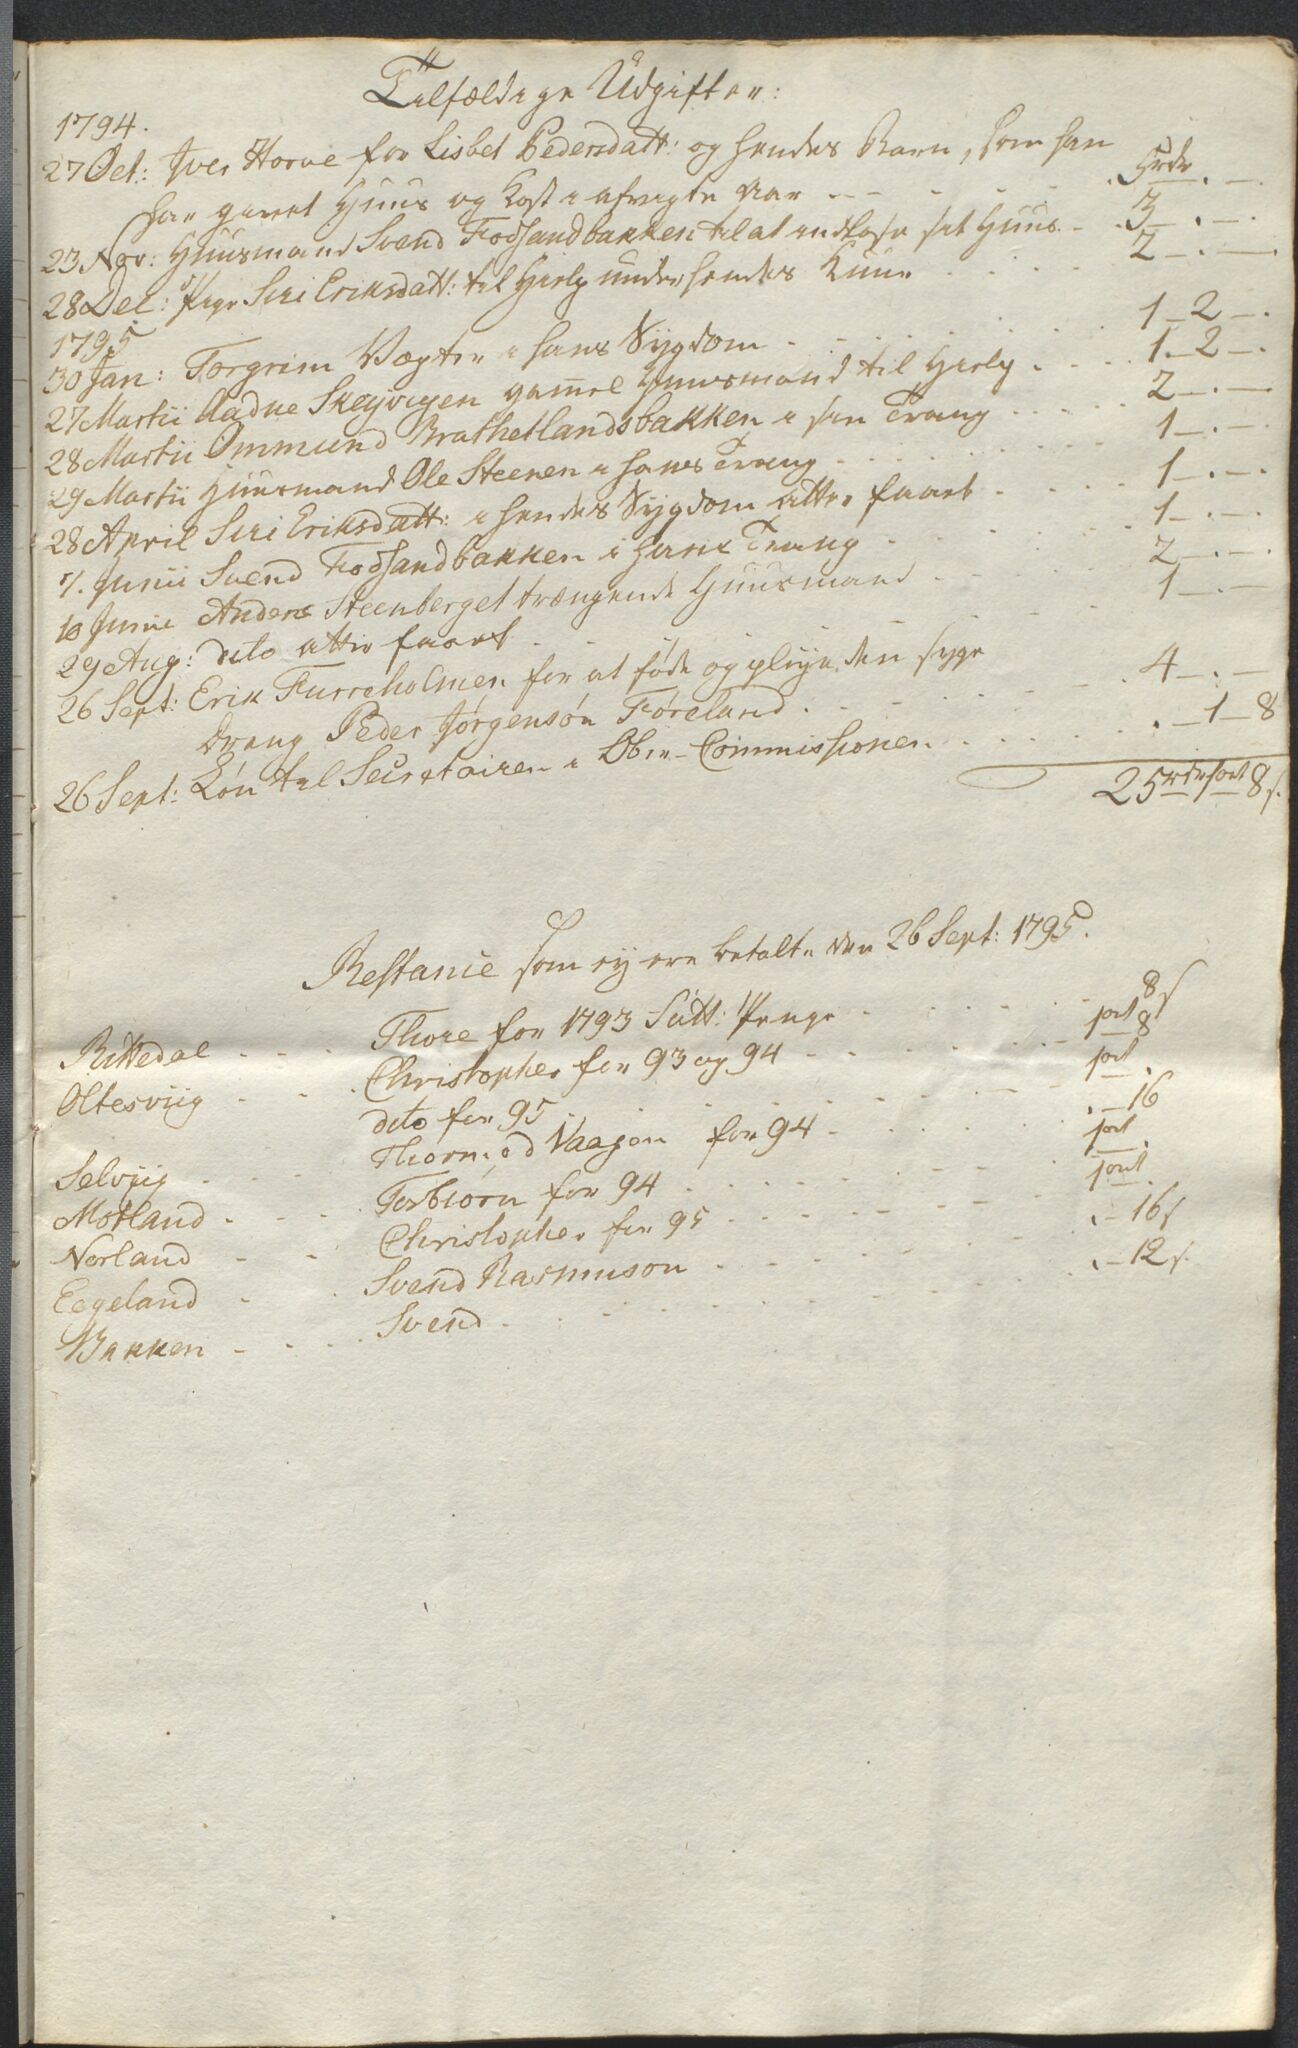 Tilfældige Udgifter:
1794.
27 Oct: Iver Horve for Lisbet Pedersdatt: og hendes Barn, som han
har givet Huus og Kost i afvigte Aar - - - - . 3 rdr . —
23 Nov: Huusmand Svend Fodsandbakken til at indløse sit Huus - . 3 . — .
28 Dec: Pige Siri Eriksdatt: til Hielp under hendes - - - 2 — . —
1795
30 Jan: Torgrim Vægter i hans Sygdom - - - 1 — 2 — .
27 Martii Aadne Skeyvigen gamel Huusmand til Hielp . - - 1 — 2 — .
28 Martii Ommund Brathetlandsbakken i sin Trang - - - 2 — . —
29 Martii Huusmand Ole Steenen i hans Trang - - - 1 — . —
28 April Siri Eriksdatt: i hendes Sygdom atter faaet - - - 1 — . —
7. Junii Svend Fodsandbakken i hans Trang - - - 1 — . —
10 Junii Anders Steenberget trængende Huusmand - - - 2 — . —
29 Aug: dito atter faaet - - - 1 — . —
26 Sept: Erik Furreholmen for at føde og pleye den syge
Dreng Peder Jørgensøn Føreland - - - 4 — . —
26 Sept: Løn til Secretairen i Over-Commissionen - - - . — 1 — 8
25 rdr ort 8 s.
Restance som ey ere betalte den 26 Sept: 1795.
Rettedal - - - Thore for 1793 Sætt: Penge - - - ort 8 s
Oltesviig - - - Christopher for 93 og 94 - - - ort 8
dito for 95 - - - ort .
Selviig - - - Thormod Vaagen for 94 - - - . — 16
Motland - - - Torbiørn for 94 - - - ort .
Norland - - - Christopher for 95 - - - ort .
Eegeland - - - Svend Rasmuson - - - . — 16 s
Bakken - - - Svend - - - . — 12 s.